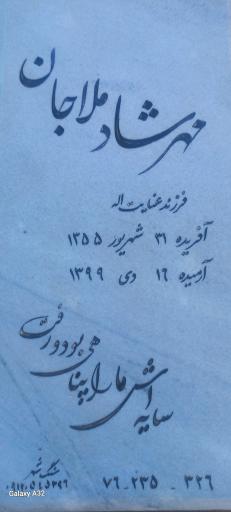 مهرشاد ملاجان
فرزند عنایت اله
آفریده ۳۱ شهریور ۱۳۵۵
آرمیده ۱۶ دی ۱۳۹۹
سایه اش ما را پناهی بود و رفت
۳۲۶ - ۲۳۵ - ۷۶
Galaxy A32